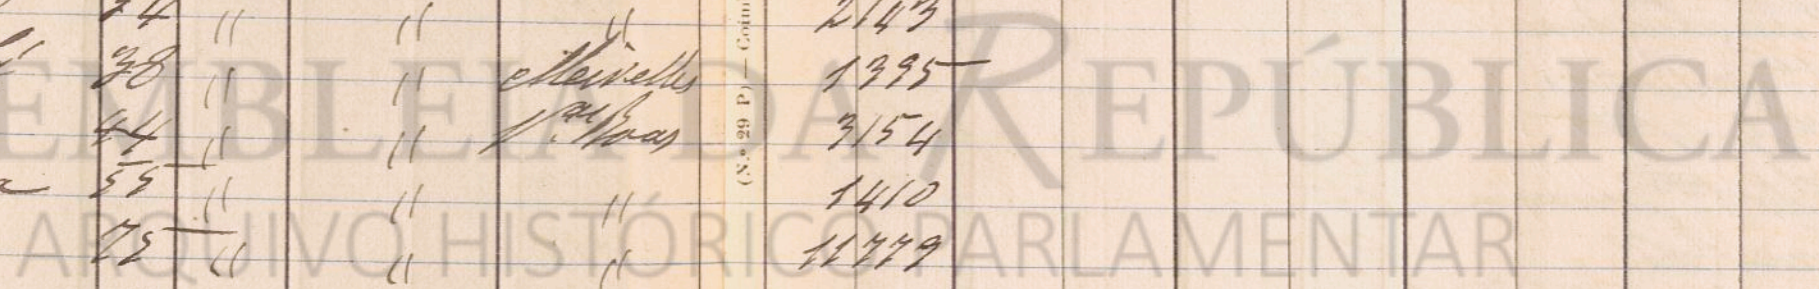 74 " " " 2143
38 " " Meirelles 1395
44 " " V.ª Boas 3154
55 " " " 1410
75 " " " 11779
(N.º 29 P) — Coim
EMBLEIA DA REPÚBLICA
ARQUIVO HISTÓRICO PARLAMENTAR